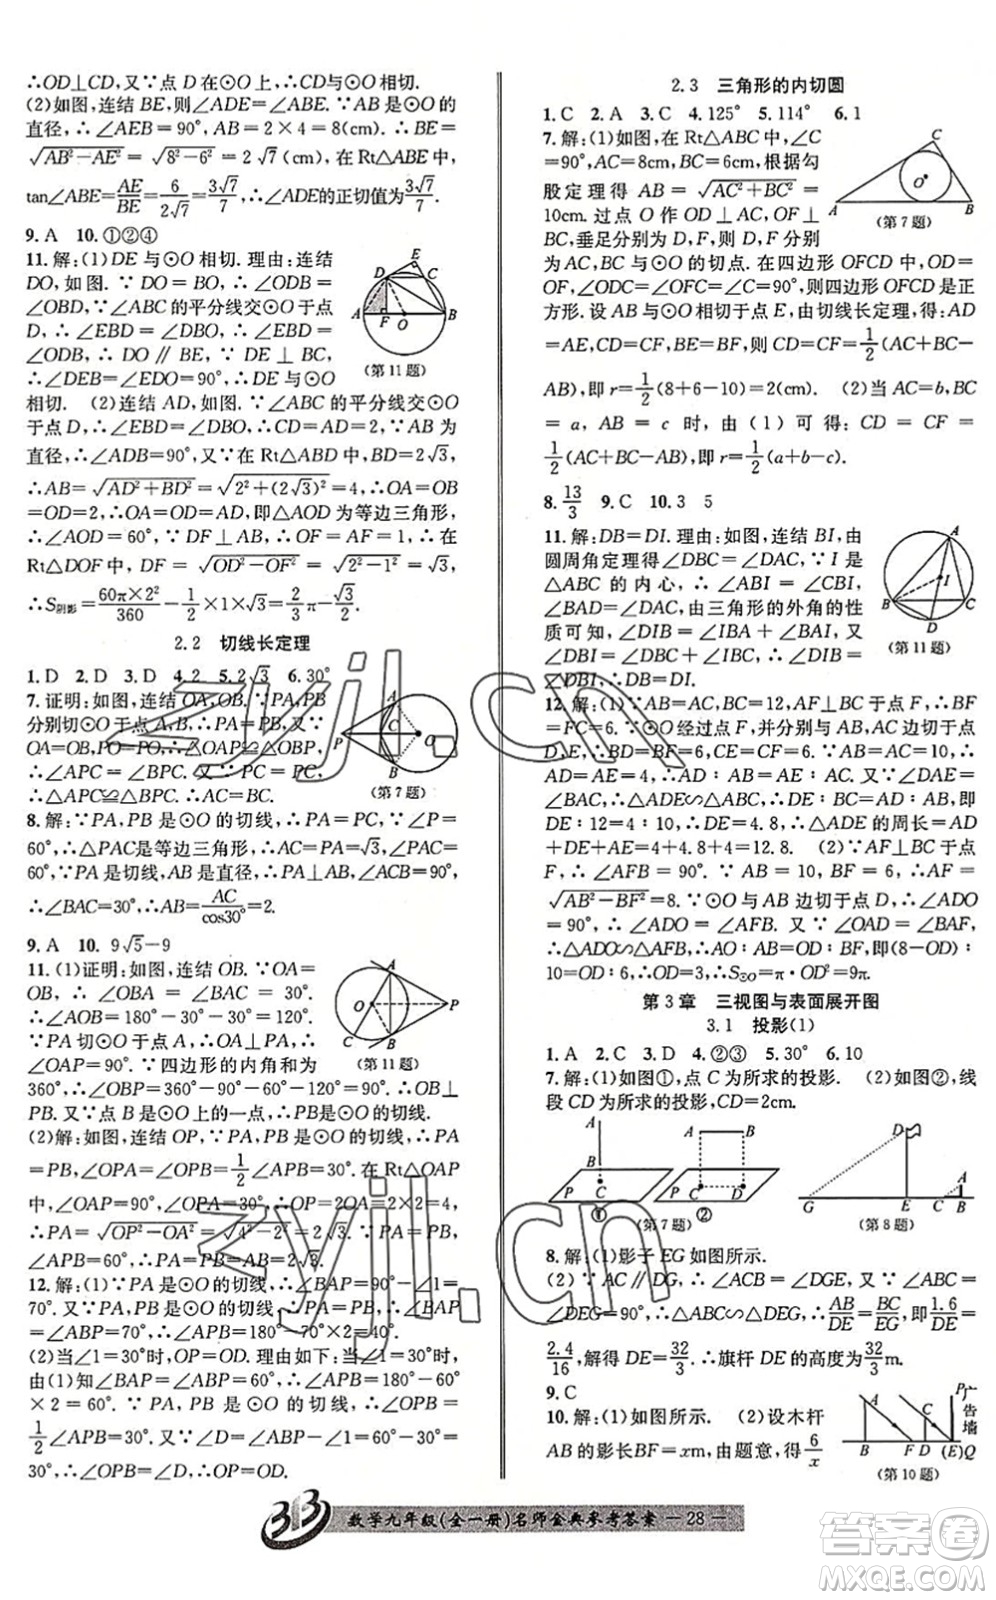 ∴OD⊥CD,又∵点 D 在⊙O 上,∴CD与⊙O 相切.
(2)如图,连结 BE,则∠ADE=∠ABE.∵AB 是⊙O 的
直径,∴∠AEB=90°,AB=2×4=8(cm),∴BE=
√(AB²−AE²)=√(8²−6²)=2√7(cm),在 Rt△ABE 中,
tan∠ABE=AE/BE=6/(2√7)=3√7/7.∴∠ADE的正切值为3√7/7.
9. A 10. ①②④
11. 解:(1)DE与⊙O 相切.理由:连结
DO,如图,∵OD=OB,∴∠ODB=
∠OBD,∵∠ABC的平分线交⊙O于点
D,∴∠EBD=∠DBO,∴∠EBD=
∠ODB,∴DO∥BE,∵DE⊥BC,
∴∠DEB=∠EDO=90°,∴DE与⊙O
相切. (2)连结 AD,如图,∵∠ABC 的平分线交⊙O
于点D,∴∠EBD=∠DBO,∴CD=AD=2,∵AB为
直径,∴∠ADB=90°,又∵在 Rt△ABD 中,BD=2√3,
∴AB=√(AD²+BD²)=√(2²+(2√3)²)=4,∴OA=OB
=OD=2,∴OA=OD=AD,即△AOD为等边三角形,
∴∠AOD=60°,∵DF⊥AB,∴OF=AF=1,∴在
Rt△DOF 中,DF=√(OD²−OF²)=√(2²−1²)=√3,
∴S阴影=60π×2²/360−1/2×1×√3=2/3π−√3/2.
2.2 切线长定理
1. D 2. D 3. D 4. 2 5. 2√3 6. 30°
7. 证明:如图,连结OA,OB.∵PA,PB
分别切⊙O于点A,B,∴PA=PB.又∵
OA=OB,PO=PO,∴△OAP≌△OBP.
∴∠APC=∠BPC.又∵PC=PC,
∴△APC≌△BPC.∴AC=BC.
8. 解:∵PA,PB 是⊙O 的切线,∴PA=PC,∵∠P=
60°,∴△PAC是等边三角形,∴AC=PA=√3,∠PAC=
60°,∵PA 是切线,AB 是直径,∴PA⊥AB,∴∠PAB=90°,
∴∠BAC=30°,∴AB=AC/cos30°=2.
9. A 10. 9√5−9
11. (1)证明:如图,连结 OB.∵OA=
OB,∴∠OBA=∠BAC=30°.
∴∠AOB=180°−30°−30°=120°.
∵PA 切⊙O 于点 A,∴OA⊥PA,
∴∠OAP=90°.∵四边形的内角和为
360°,∴∠OBP=360°−90°−60°−120°=90°.∴OB⊥
PB.又∵点 B 是⊙O 上的一点,∴PB 是⊙O 的切线.
(2)解:如图,连结 OP,∵PA,PB 是⊙O 的切线,∴PA
=PB,∠OPA=∠OPB=1/2∠APB=30°.在 Rt△OAP
中,∠OAP=90°,∠OPA=30°,∴OP=2OA=2×2=4,
∴PA=√(OP²−OA²)=√(4²−2²)=2√3.∵PA=PB,
∠APB=60°,∴PA=PB=AB=2√3.
12. 解:(1)∵PA是⊙O的切线,∴∠BAP=90°−∠1=
70°.又∵PA,PB 是⊙O 的切线,∴PA=PB,∴∠BAP
=∠ABP=70°,∴∠APB=180°−70°×2=40°.
(2)当∠1=30°时,OP=OD.理由如下:当∠1=30°时,
由(1)知∠BAP=∠ABP=60°,∴∠APB=180°−60°
×2=60°.∵PA,PB 是⊙O 的切线,∴∠OPB=
1/2∠APB=30°.又∵∠D=∠ABP−∠1=60°−30°=
30°,∴∠OPB=∠D,∴OP=OD.
(第11题)
(第7题)
(第11题)
2.3 三角形的内切圆
1. C 2. A 3. C 4. 125° 5. 114° 6. 1
7. 解:(1)如图,在 Rt△ABC 中,∠C
=90°,AC=8cm,BC=6cm,根据勾
股定理得 AB=√(AC²+BC²)=
10cm.过点 O 作 OD⊥AC,OF⊥
BC,垂足分别为 D,F,与⊙O 的切点
为AC,BC与⊙O的切点.在四边形 OFCD 中,OD=
OF,∠ODC=∠OFC=∠C=90°,则四边形OFCD是正
方形.设AB与⊙O的切点为点E,由切线长定理,得:AD
=AE,CD=CF,BE=BF,则CD=CF=1/2(AC+BC−
AB),即 r=1/2(8+6−10)=2(cm). (2)当 AC=b,BC
=a,AB=c 时,由(1)可得:CD=CF=
1/2(AC+BC−AB),即r=1/2(a+b−c).
8. 13/3 9. C 10. 3 5
11. 解:DB=DI.理由:如图,连结 BI,由
圆周角定理得∠DBC=∠DAC,∵I 是
△ABC 的内心,∴∠CBI=∠ABI,
∠DAC=∠DAB,由三角形的外角的性
质可知,∠DIB=∠DAB+∠ABI,又
∵∠DBI=∠DBC+∠CBI,∴∠DIB=
∠DBI,∴DB=DI.
12. 解:(1)∵AB=AC,BC=12,AF⊥BC 于点F,∴BF=
FC=6.∵⊙O 经过点 F,并与AB,AC 边切于点
D,E,∴BD=BF=6.∴AD=AB−BD=10−6=4.
∵AB=AC,AD=AE,∴DE∥BC,∴△ADE∽△ABC,∴
DE∶12=4∶10,∴DE=4.8,∴△ADE 的周长=AD+
DE+AE=4+4+4.8=12.8. (2)∵AF⊥BC 于点
F,∴∠AFB=90°.∵AB=10,BF=6,∴AF=
√(AB²−BF²)=8.∵⊙O 与AB 边切于点 D,∴∠ADO
=90°,∴∠ADO=∠AFB.又∵∠OAD=∠BAF,
∴△ADO∽△AFB,∴AD∶AF=AO∶AB,即(8−OF)∶
10=OF∶6,∴OF=3,∴S⊙O=π·OD²=9π.
第 3 章 三视图与表面展开图
3.1 投影(1)
1. A 2. C 3. D 4. ②③ 5. 30° 6. 10
7. 解:(1)如图①,点 C 为所求的投影. (2)如图②,线
段 CD 为所求的投影,CD=2cm.
8. 解:(1)影子 EG 如图所示.
(2)∵AC∥DG,∴∠ACB=∠DGE,又∵∠ABC=
∠DEG=90°,∴△ABC∽△DEG,∴AB/DE=BC/EG,即1.6/DE=
2.4/16,解得 DE=32/3.∴旗杆 DE 的高度为32/3m.
9. C
10. 解:(1)如图所示. (2)设木杆
AB 的影长BF=xm,由题意,得6/x
(第7题)
(第11题)
A B P C ① (第7题) A B P C D ②
D G E C A B (第8题)
A C P 广告墙 B F D (E) Q
(第10题)
数学九年级(全一册)名师金典参考答案 — 28 —
zyjl.cn
zyjl.cn
答案圈
MXQE.COM